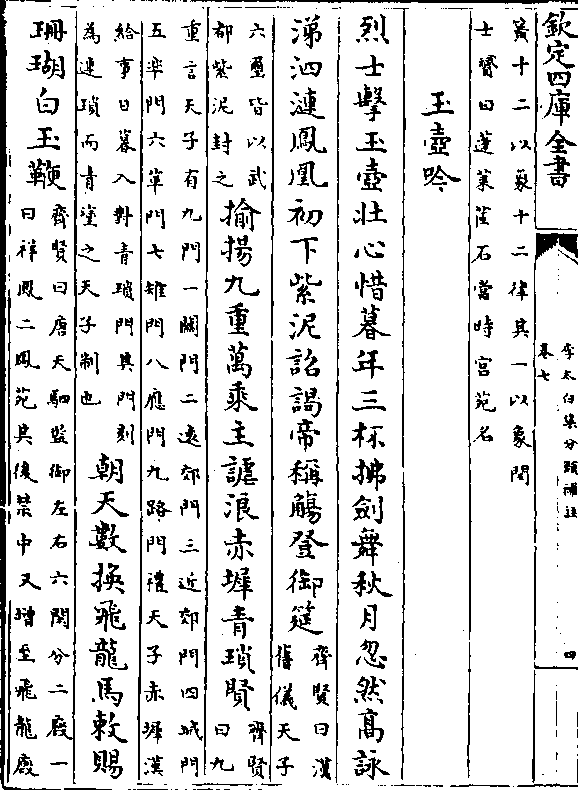 欽定四庫全書
李太白集分類補註
卷七
四
寅十二以象十二律其一以象閏
士贇曰蓬萊薩石當時宮苑名
玉壺吟
烈士擊玉壺壯心惜暮年三杯拂劍舞秋月忽然高詠
涕泗漣鳳凰初下紫泥詔謁帝稱觴登御筵齊賢曰漢
舊儀天子
六璽皆以武
都紫泥封之揄揚九重萬乘主謔浪赤墀青瑣賢齊賢
曰九
重言天子有九門一關門二遠郊門三近郊門四城門
五臯門六庫門七雉門八應門九路門禮天子赤墀漢
給事日暮入對青瑣門其門刻
為連瑣而青塗之天子制也朝天數換飛龍馬敕賜
珊瑚白玉鞭齊賢曰唐天駟監御左右六閑分二廄一
曰祥鳳二鳳苑其後禁中又增至飛龍廄